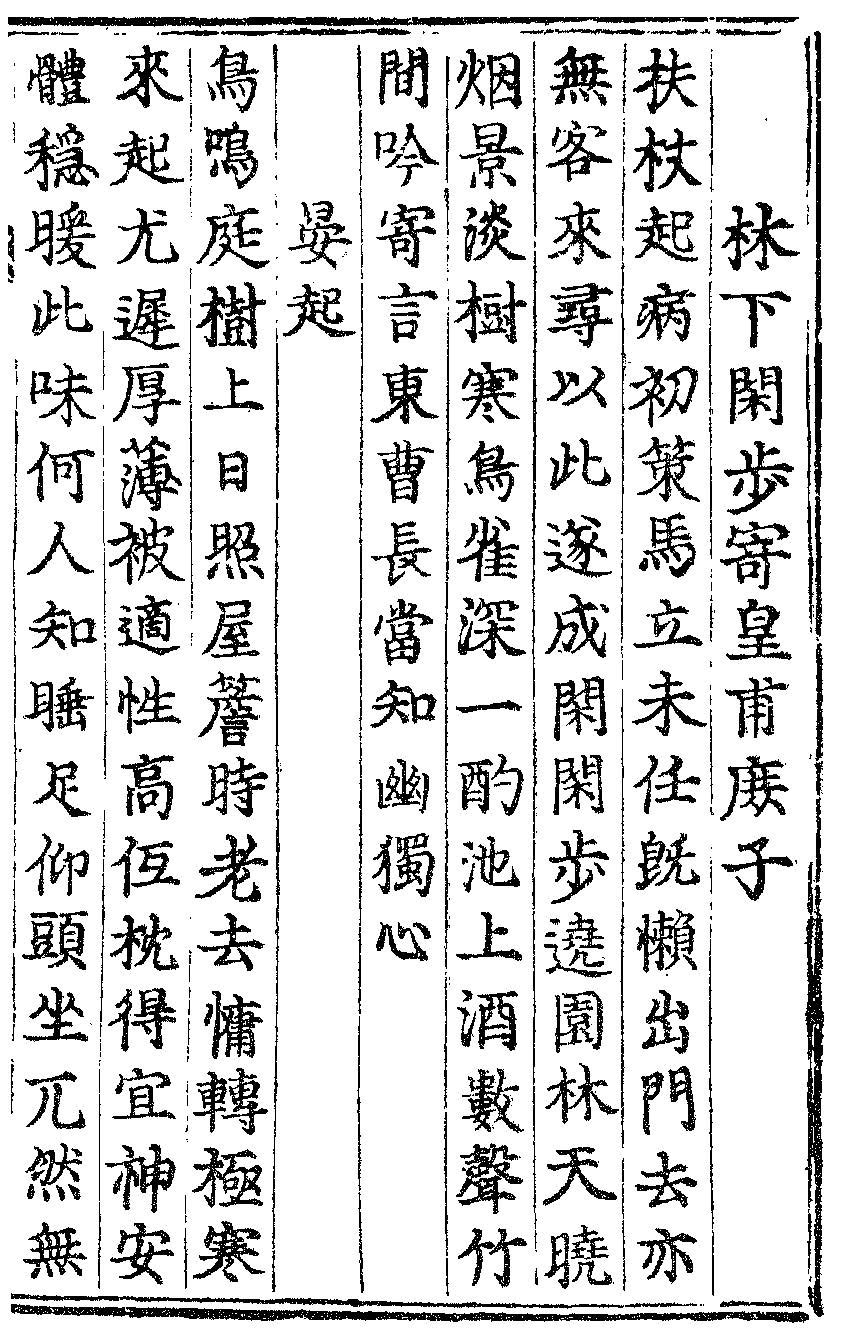 林下閑步寄皇甫庻子
扶杖起病初策馬立未任旣懶出門去亦
無客來尋以此遂成閑閑步遶園林天曉
烟景淡樹寒鳥雀深一酌池上酒數聲竹
間吟寄言東曹長當知幽獨心
晏起
鳥鳴庭樹上日照屋簷時老去慵轉極寒
來起尤遲厚薄被適性高低枕得宜神安
體穩暖此味何人知睡足仰頭坐兀然無